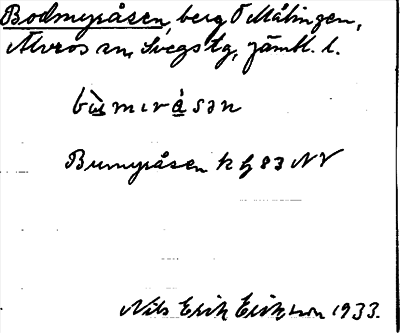 Bodmyråsen, berg Ö Målingen,
Älvros sn, Svegs tg, Jämtl. l.
bùmıråsən
Bumyråsen k bl 83 NV
Nils Erik Eriksson 1933.